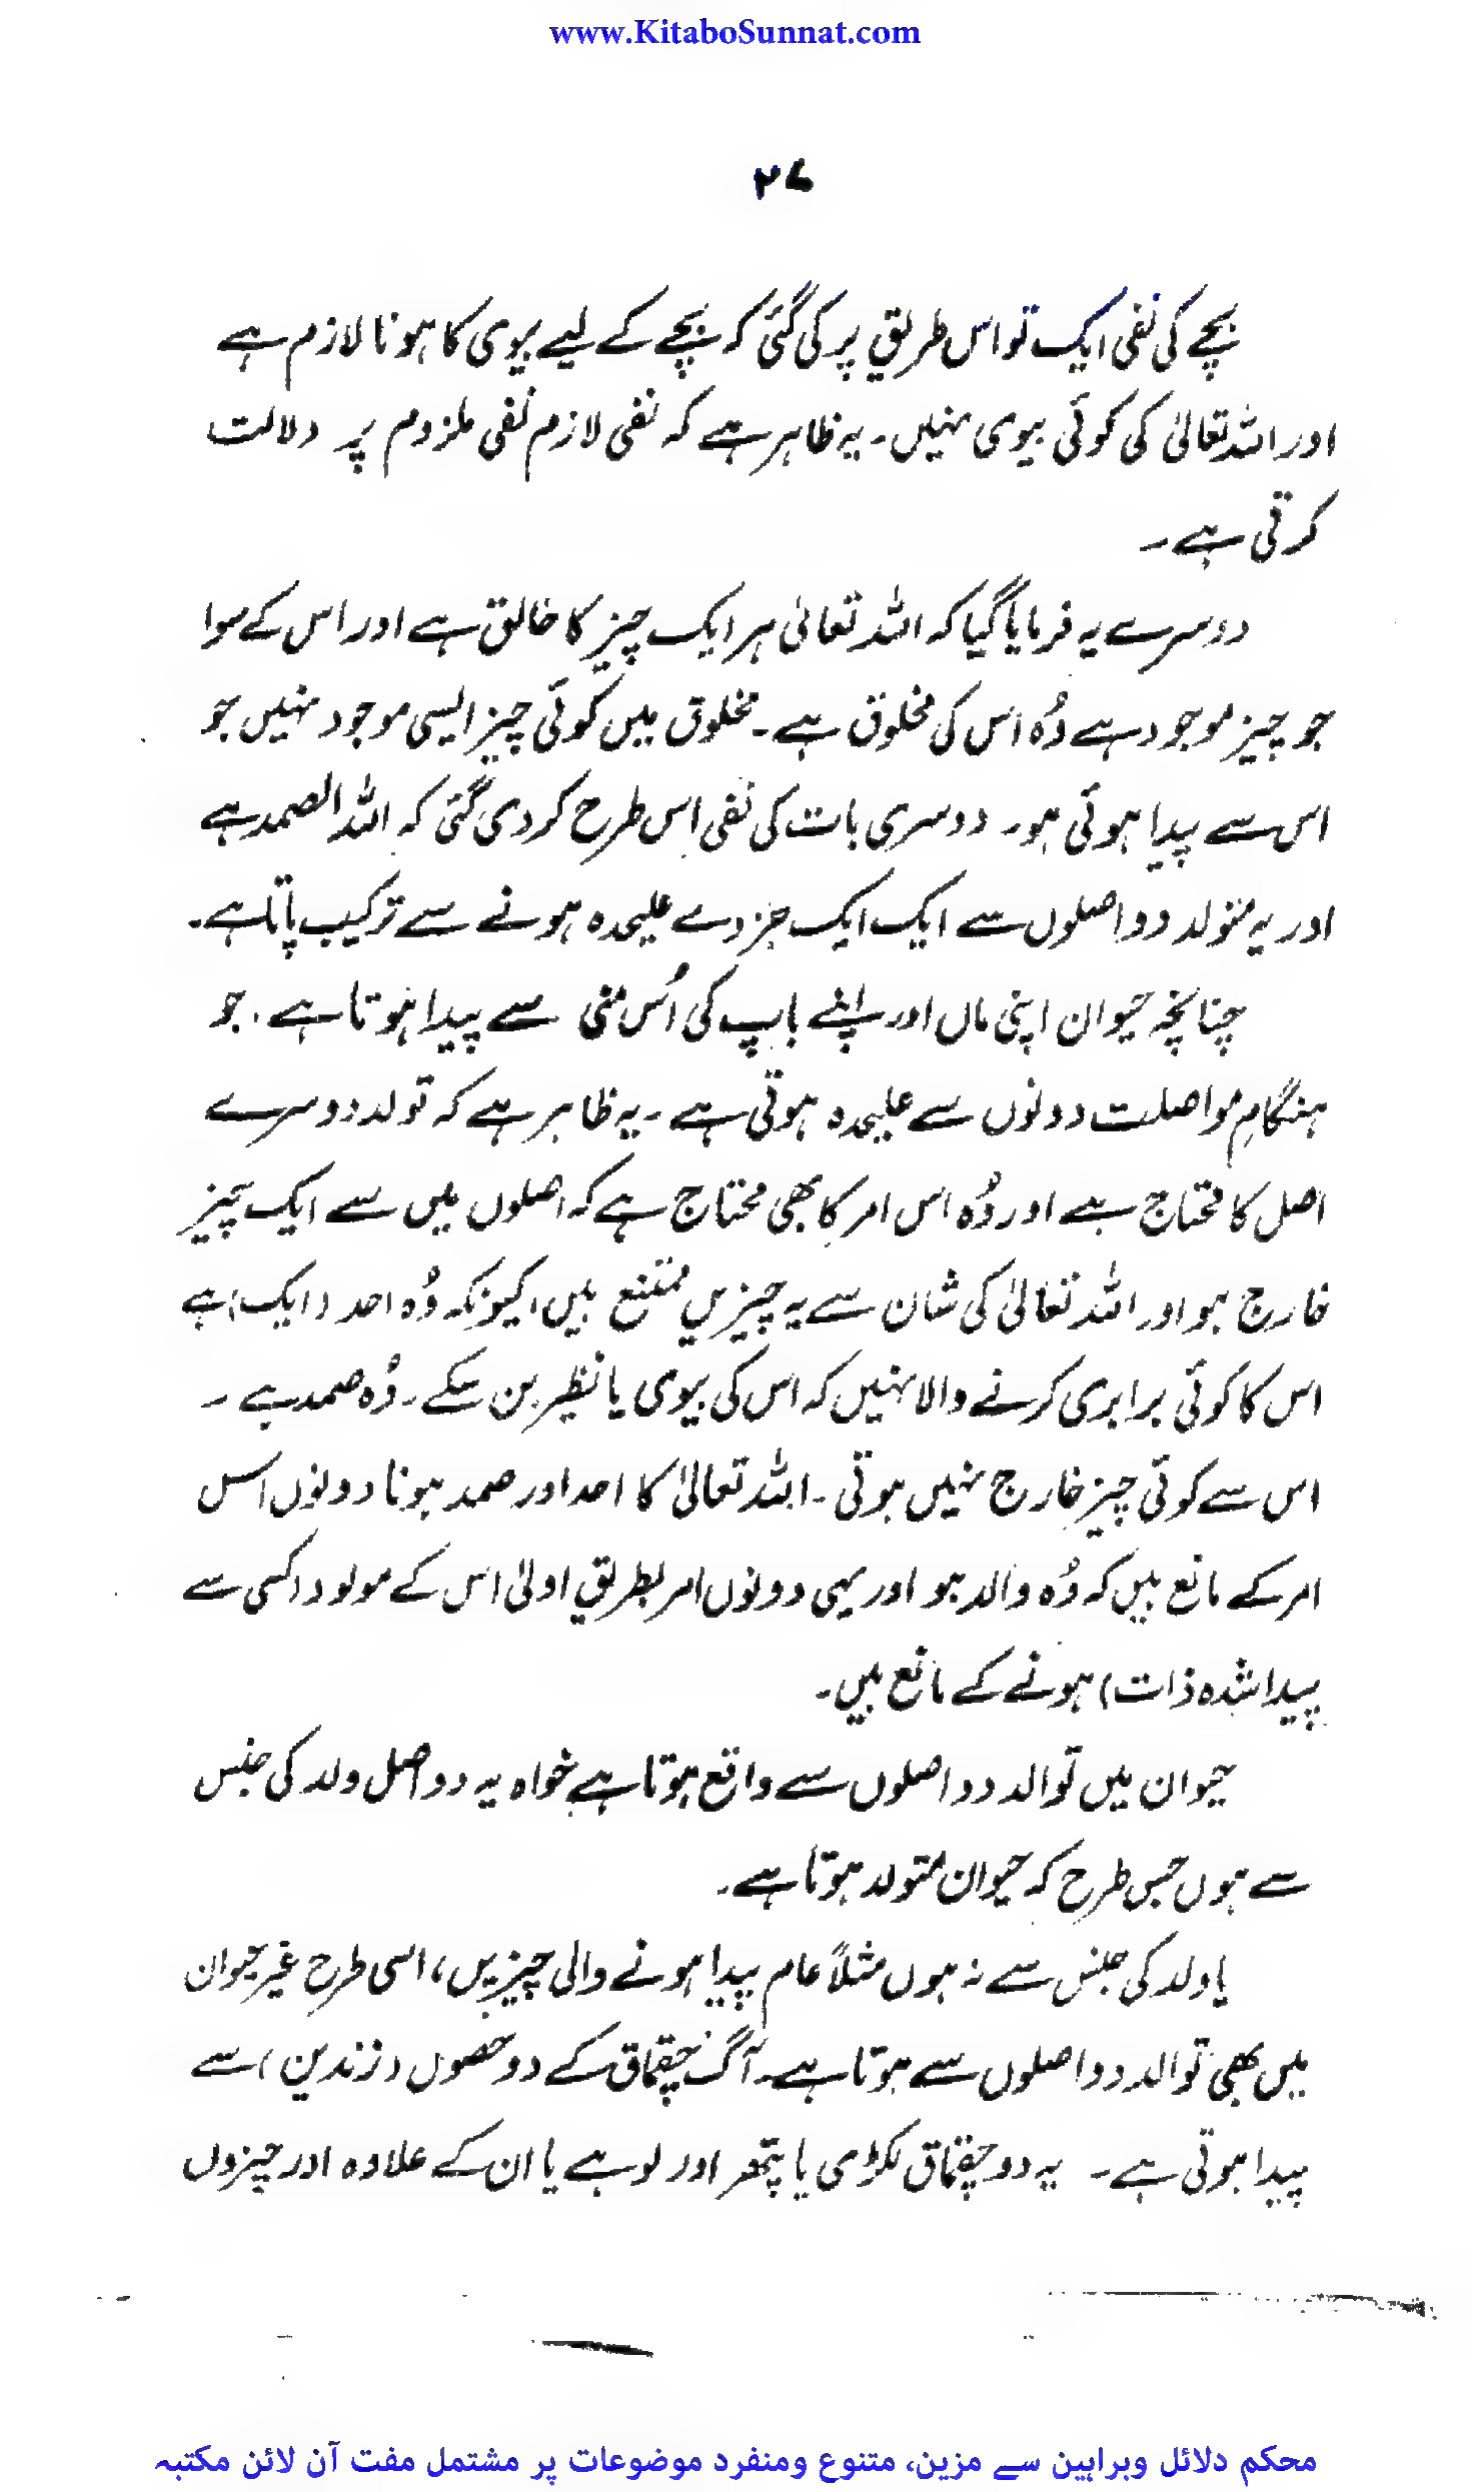 www.KitaboSunnat.com
۲۷
بچے کی نفی ایک تو اس طریق پر کی گئی کہ بچے کے لیے بیوی کا ہونا لازم ہے
اور اللہ تعالیٰ کی کوئی بیوی نہیں۔ یہ ظاہر ہے کہ نفی لازم نفی ملزوم پر دلالت
کرتی ہے۔
دوسرے یہ فرمایا گیا کہ اللہ تعالیٰ ہر ایک چیز کا خالق ہے اور اس کے سوا
جو چیز موجود ہے وُہ اس کی مخلوق ہے۔ مخلوق میں کوئی چیز ایسی موجود نہیں جو
اس سے پیدا ہوئی ہو۔ دوسری بات کی نفی اس طرح کر دی گئی کہ اللہ الصمد ہے
اور یہ متولد دو اصلوں سے ایک ایک جزو کے علیحدہ ہونے سے ترکیب پاتا ہے۔
چنانچہ حیوان اپنی ماں اور اپنے باپ کی اُس منی سے پیدا ہوتا ہے۔ جو
ہنگامِ مواصلت دونوں سے علیحدہ ہوتی ہے۔ یہ ظاہر ہے کہ تولد دوسرے
اصل کا محتاج ہے اور وُہ اس امر کا بھی محتاج ہے کہ اصلوں میں سے ایک چیز
خارج ہو اور اللہ تعالیٰ کی شان سے یہ چیزیں ممتنع ہیں، کیونکہ وُہ احد (ایک) ہے
اس کا کوئی برابری کرنے والا نہیں کہ اس کی بیوی یا نظیر بن سکے۔ وُہ صمد ہے۔
اس سے کوئی چیز خارج نہیں ہوتی۔ اللہ تعالیٰ کا احد اور صمد ہونا دونوں اس
امر کے مانع ہیں کہ وُہ والد ہو اور یہی دونوں امر بطریق اولیٰ اس کے مولود (کسی سے
پیدا شدہ ذات) ہونے کے مانع ہیں۔
حیوان میں توالد دو اصلوں سے واقع ہوتا ہے خواہ یہ دو اصل ولد کی جنس
سے ہوں جس طرح کہ حیوان متولد ہوتا ہے۔
یا ولد کی جنس سے نہ ہوں مثلاً عام پیدا ہونے والی چیزیں، اسی طرح غیر حیوان
میں بھی توالد دو اصلوں سے ہوتا ہے۔ آگ چقماق کے دو حصوں (زندین) سے
پیدا ہوتی ہے۔ یہ دو چقماق لکڑی یا پتھر اور لوہے یا ان کے علاوہ اور چیزوں
محکم دلائل وبراہین سے مزین، متنوع ومنفرد موضوعات پر مشتمل مفت آن لائن مکتبہ